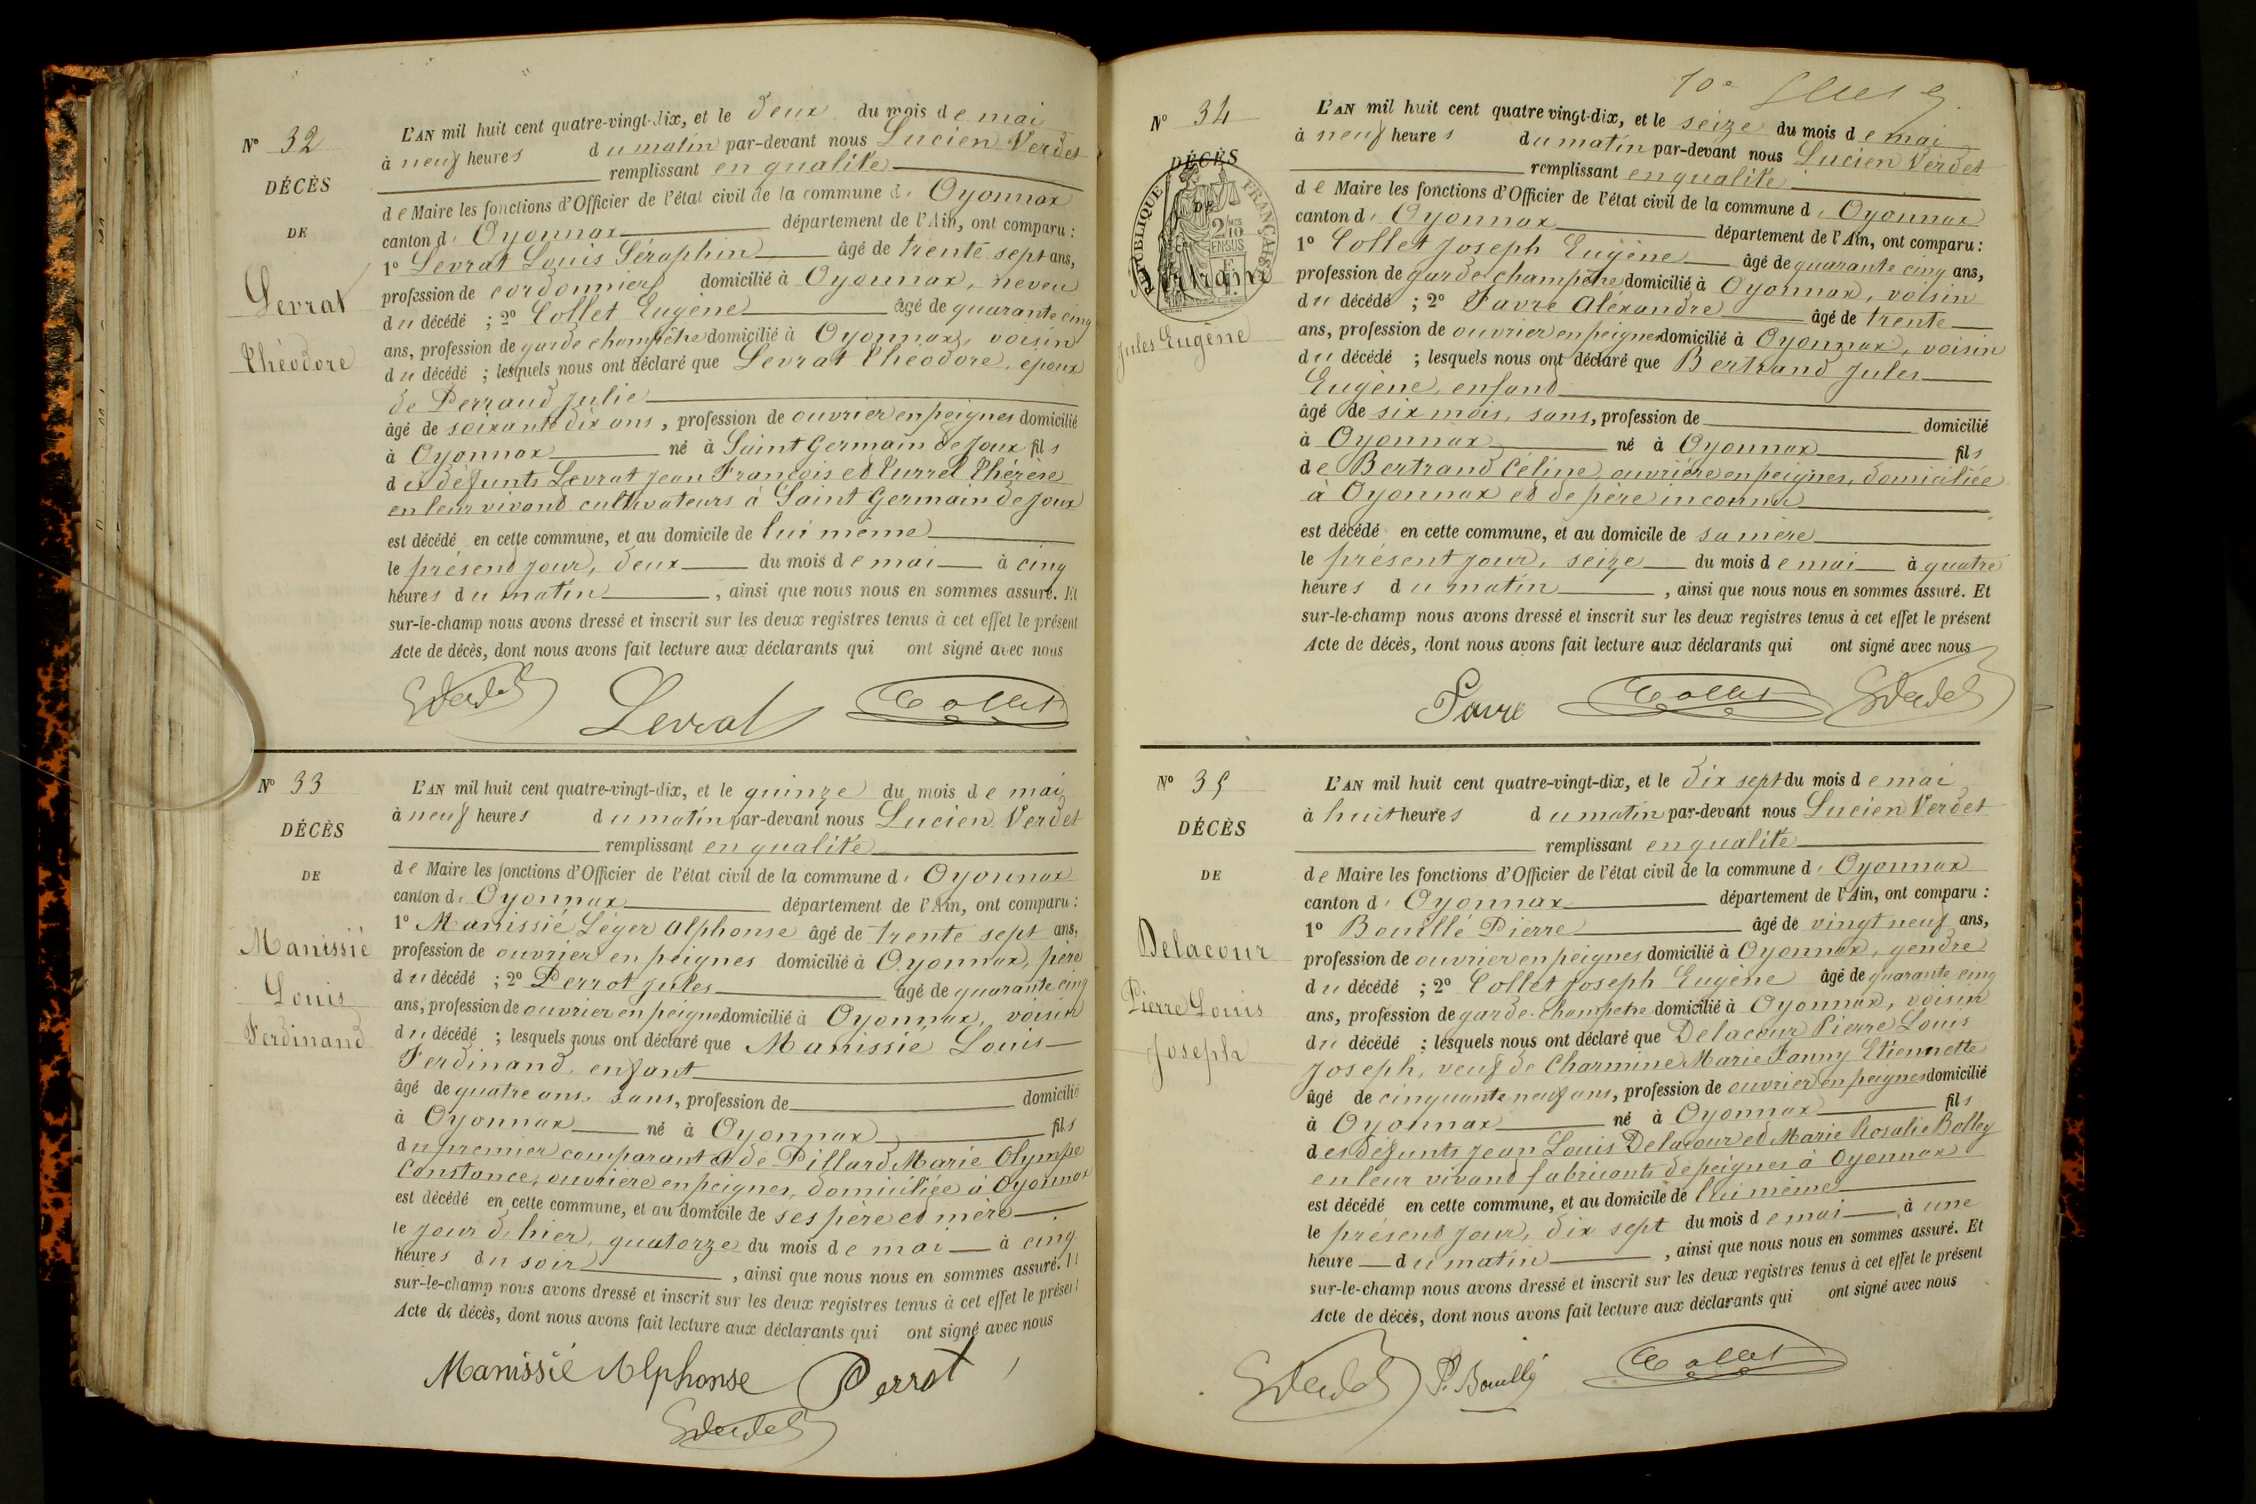 N° 32
DÉCÈS
DE
Levrat
Théodore
L'AN mil huit cent quatre-vingt-dix, et le deux du mois de mai
à neuf heures du matin par-devant nous Lucien Verdet
remplissant en qualité
de Maire les fonctions d'Officier de l'état civil de la commune d'Oyonnax
canton d'Oyonnax département de l'Ain, ont comparu :
1° Levrat Louis Séraphin âgé de trente sept ans,
profession de cordonnier domicilié à Oyonnax, neveu
du décédé ; 2° Collet Eugène âgé de quarante cinq
ans, profession de garde champêtre domicilié à Oyonnax, voisin
du décédé ; lesquels nous ont déclaré que Levrat Théodore, époux
de Perraud Julie
âgé de soixante dix ans, profession de ouvrier en peignes domicilié
à Oyonnax né à Saint Germain de Joux fils
des défunts Levrat Jean François et Turrel Thérèse
en leur vivant cultivateurs à Saint Germain de Joux
est décédé en cette commune, et au domicile de lui même
le présent jour, deux du mois de mai à cinq
heures du matin, ainsi que nous nous en sommes assuré. Et
sur-le-champ nous avons dressé et inscrit sur les deux registres tenus à cet effet le présent
Acte de décès, dont nous avons fait lecture aux déclarants qui ont signé avec nous
Verdet Levrat Collet
N° 33
DÉCÈS
DE
Manissié
Louis
Ferdinand
L'AN mil huit cent quatre-vingt-dix, et le quinze du mois de mai
à neuf heures du matin par-devant nous Lucien Verdet
remplissant en qualité
de Maire les fonctions d'Officier de l'état civil de la commune d'Oyonnax
canton d'Oyonnax département de l'Ain, ont comparu :
1° Manissié Léger Alphonse âgé de trente sept ans,
profession de ouvrier en peignes domicilié à Oyonnax, père
du décédé ; 2° Perrot Jules âgé de quarante cinq
ans, profession de ouvrier en peignes domicilié à Oyonnax, voisin
du décédé ; lesquels nous ont déclaré que Manissié Louis
Ferdinand, enfant
âgé de quatre ans, sans, profession de domicilié
à Oyonnax né à Oyonnax fils
du premier comparant et de Pillard Marie Olympe
Constance, ouvrière en peignes, domiciliée à Oyonnax
est décédé en cette commune, et au domicile de ses père et mère
le jour d'hier, quatorze du mois de mai à cinq
heures du soir, ainsi que nous nous en sommes assuré. Et
sur-le-champ nous avons dressé et inscrit sur les deux registres tenus à cet effet le présent
Acte de décès, dont nous avons fait lecture aux déclarants qui ont signé avec nous
Manissié Alphonse Perrot
Verdet
N° 34
DÉCÈS
DE
RÉPUBLIQUE FRANÇAISE
Bertrand
Jules Eugène
L'AN mil huit cent quatre vingt-dix, et le seize du mois de mai
à neuf heures du matin par-devant nous Lucien Verdet
remplissant en qualité
de Maire les fonctions d'Officier de l'état civil de la commune d'Oyonnax
canton d'Oyonnax département de l'Ain, ont comparu :
1° Collet Joseph Eugène âgé de quarante cinq ans,
profession de garde champêtre domicilié à Oyonnax, voisin
du décédé ; 2° Favre Aléxandre âgé de trente
ans, profession de ouvrier en peignes domicilié à Oyonnax, voisin
du décédé ; lesquels nous ont déclaré que Bertrand Jules
Eugène, enfant
âgé de six mois, sans, profession de domicilié
à Oyonnax né à Oyonnax fils
de Bertrand Céline, ouvrière en peignes, domiciliée
à Oyonnax et de père inconnu
est décédé en cette commune, et au domicile de sa mère
le présent jour, seize du mois de mai à quatre
heures du matin, ainsi que nous nous en sommes assuré. Et
sur-le-champ nous avons dressé et inscrit sur les deux registres tenus à cet effet le présent
Acte de décès, dont nous avons fait lecture aux déclarants qui ont signé avec nous
Favre Collet Verdet
N° 35
DÉCÈS
DE
Delacour
Pierre Louis
Joseph
L'AN mil huit cent quatre-vingt-dix, et le dix sept du mois de mai
à huit heures du matin par-devant nous Lucien Verdet
remplissant en qualité
de Maire les fonctions d'Officier de l'état civil de la commune d'Oyonnax
canton d'Oyonnax département de l'Ain, ont comparu :
1° Bouillé Pierre âgé de vingt neuf ans,
profession de ouvrier en peignes domicilié à Oyonnax, gendre
du décédé ; 2° Collet Joseph Eugène âgé de quarante cinq
ans, profession de garde-champetre domicilié à Oyonnax, voisin
du décédé ; lesquels nous ont déclaré que Delacour Pierre Louis
Joseph, veuf de Charmine Marie Fanny Etiennette
âgé de cinquante neuf ans, profession de ouvrier en peignes domicilié
à Oyonnax né à Oyonnax fils
des défunts Jean Louis Delacour et Marie Rosalie Bolley
en leur vivant fabricants de peignes à Oyonnax
est décédé en cette commune, et au domicile de lui même
le présent jour, dix sept du mois de mai à une
heure du matin, ainsi que nous nous en sommes assuré. Et
sur-le-champ nous avons dressé et inscrit sur les deux registres tenus à cet effet le présent
Acte de décès, dont nous avons fait lecture aux déclarants qui ont signé avec nous
Verdet P. Bouillé Collet